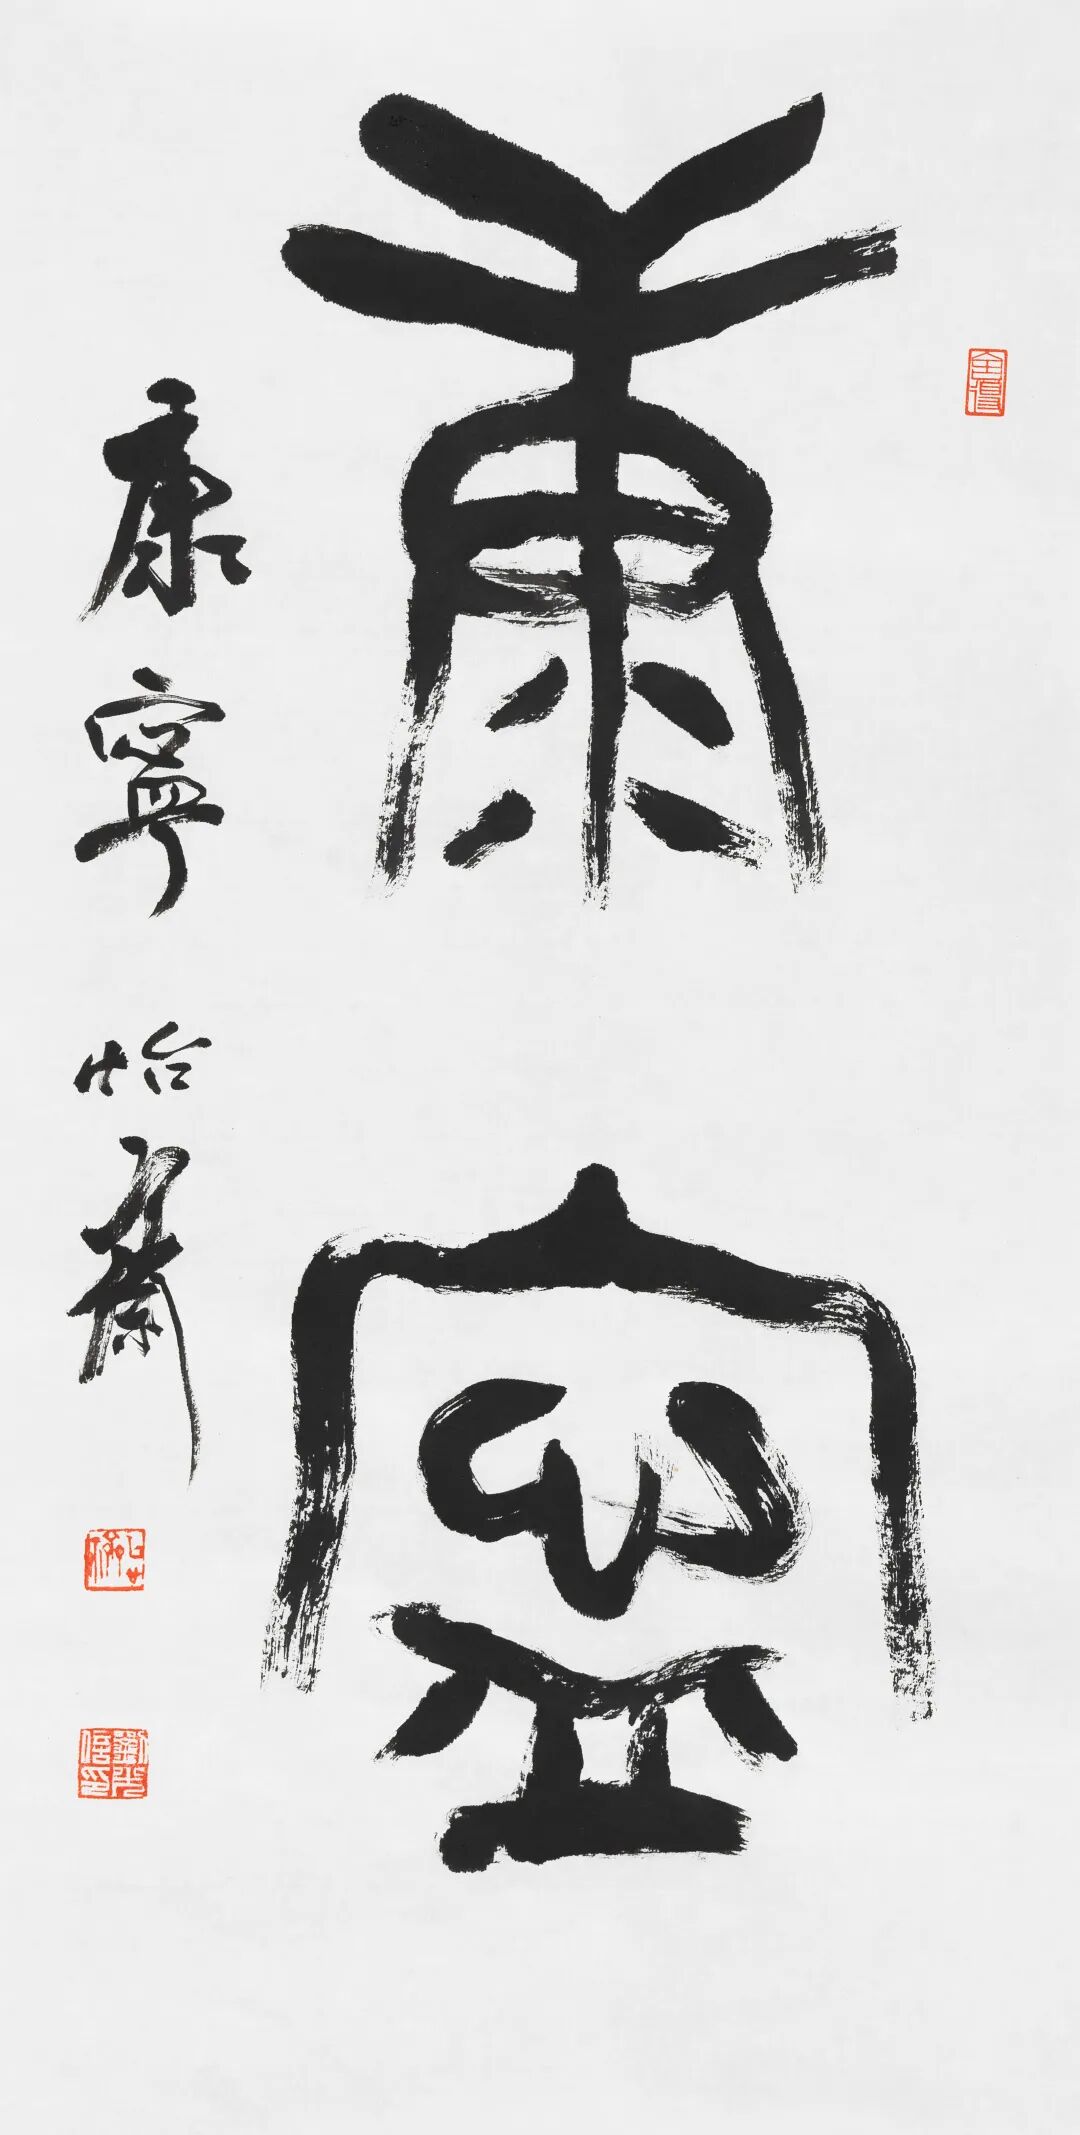 康寧
康寧 怡齋